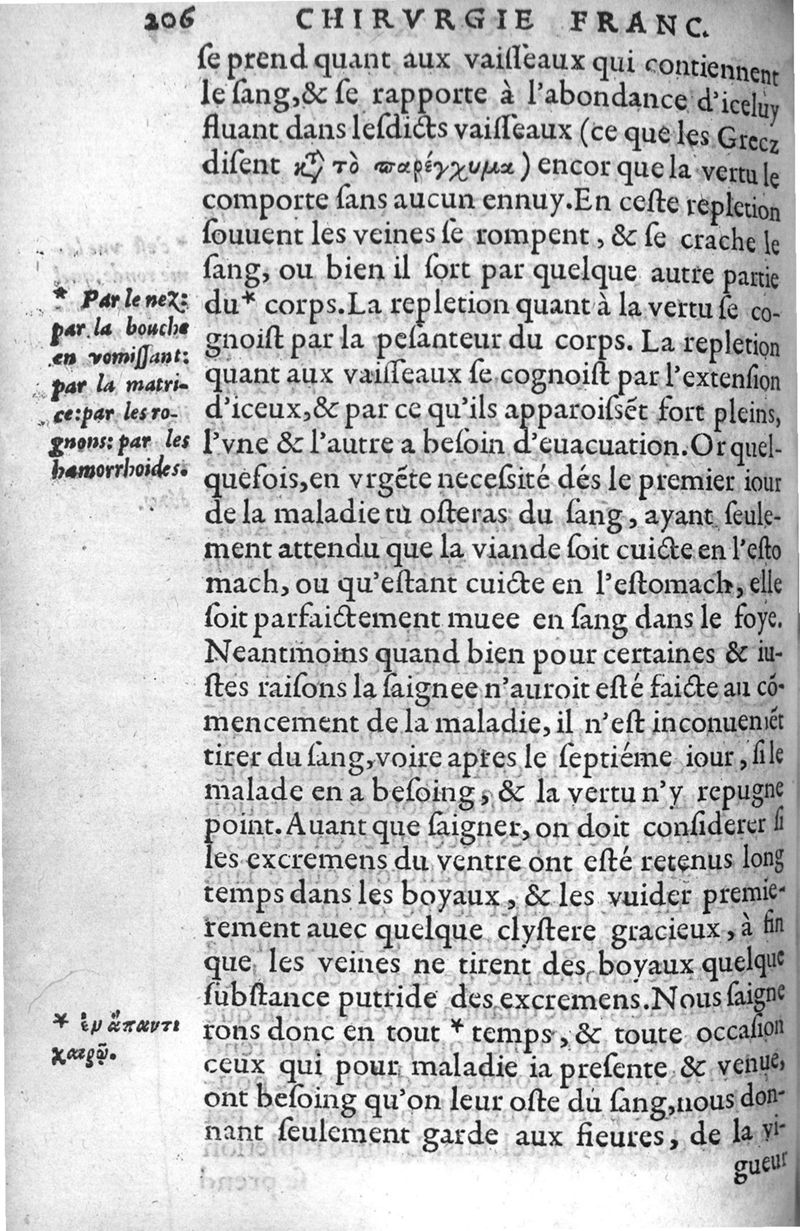 206 CHIRVRGIE FRANC.
ſe prend quant aux vaiſſeaux qui contiennent
le ſang,& ſe rapporte à l'abondance d'iceluy
fluant dans leſdicts vaiſſeaux (ce que les Grecz
diſent κ̀ τὸ παρέγχυμα) encor que la vertu le
comporte ſans aucun ennuy.En ceſte repletion
ſouuent les veines ſe rompent, & ſe crache le
ſang, ou bien il ſort par quelque autre partie
du* corps.La repletion quant à la vertu ſe co-
gnoiſt par la peſanteur du corps. La repletion
quant aux vaiſſeaux ſe cognoiſt par l'extenſion
d'iceux,& par ce qu'ils apparoiſsẽt fort pleins,
l'vne & l'autre a beſoin d'euacuation.Or quel-
quefois,en vrgẽte neceſsité dés le premier iour
de la maladie tu oſteras du ſang, ayant ſeule-
ment attendu que la viande ſoit cuicte en l'eſto
mach, ou qu'eſtant cuicte en l'eſtomach, elle
ſoit parfaictement muee en ſang dans le foye.
Neantmoins quand bien pour certaines & iu-
ſtes raiſons la ſaignee n'auroit eſté faicte au cõ-
mencement de la maladie, il n'eſt inconueniẽt
tirer du ſang,voire apres le ſeptiéme iour, ſi le
malade en a beſoing, & la vertu n'y repugne
point.Auant que ſaigner, on doit conſiderer ſi
les excremens du ventre ont eſté retenus long
temps dans les boyaux, & les vuider premie-
rement auec quelque clyſtere gracieux, à fin
que les veines ne tirent des boyaux quelque
ſubſtance putride des excremens.Nous ſaigne
rons donc en tout * temps, & toute occaſion
ceux qui pour maladie ia preſente & venue,
ont beſoing qu'on leur oſte du ſang,nous don-
nant ſeulement garde aux fieures, de la vi-
gueur
* Par le nez:
par la bouche
en vomiſſant:
par la matri-
ce:par les ro-
gnons: par les
hæmorrhoides.
* ἐν ἅπαντι
καιρῷ.